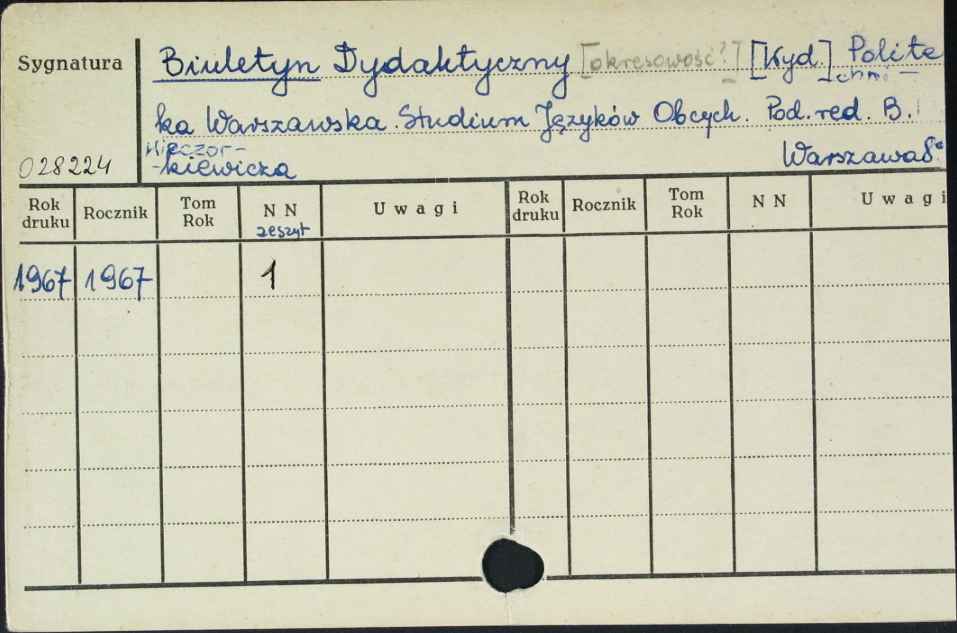 Sygnatura
Biuletyn Dydaktyczny [okresowość?] [Wyd.] Polite
chni-
ka Warszawska. Studium Języków Obcych. Pod. red. B.
Wieczor-
028224 -kiewicza Warszawa 8°
Rok druku Rocznik Tom Rok N N zeszyt Uwagi Rok druku Rocznik Tom Rok N N Uwagi
1967 1967 1